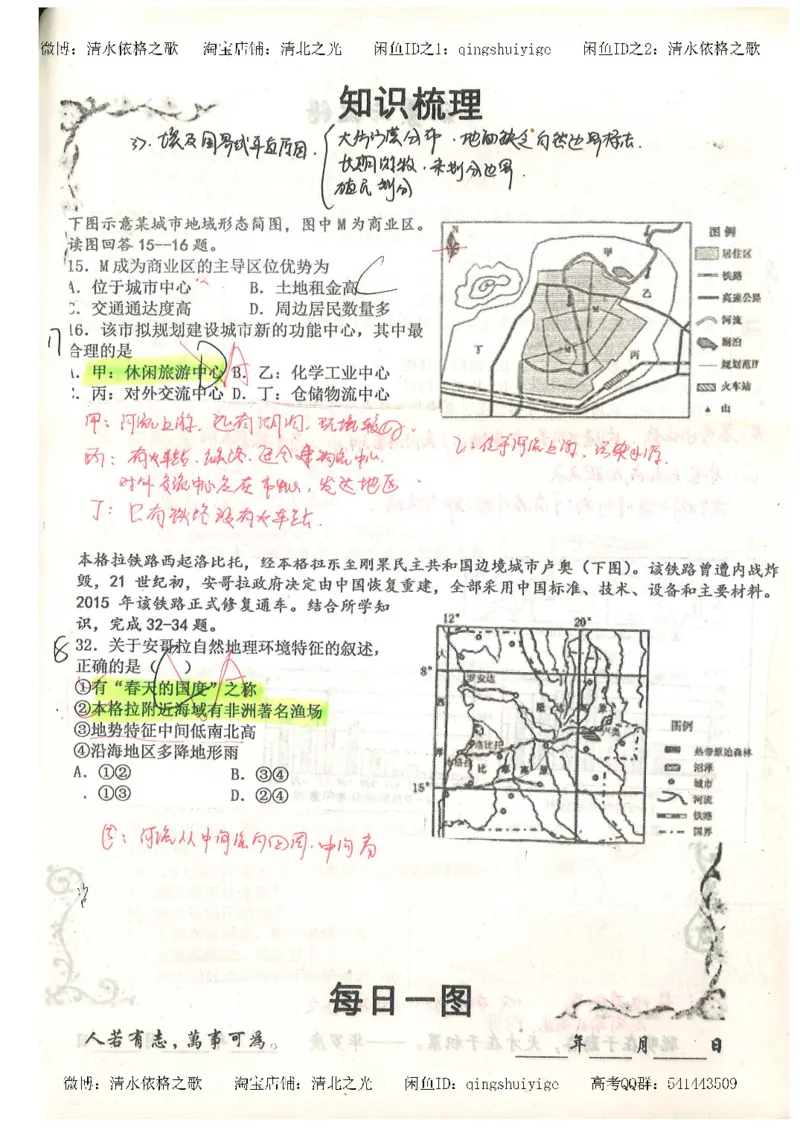 微博：清水依格之歌 淘宝店铺：清北之光 闲鱼ID之1：qingshuiyige 闲鱼ID之2：清水依格之歌
知识梳理
37. 埃及国界线平直原因.
大片沙漠分布，地面缺乏自然边界标志.
长期游牧，未划分边界.
殖民划分
下图示意某城市地域形态简图，图中 M 为商业区。
读图回答 15--16 题。
15．M 成为商业区的主导区位优势为
A．位于城市中心 B．土地租金高
C．交通通达度高 D．周边居民数量多
17
16．该市拟规划建设城市新的功能中心，其中最
合理的是
甲：休闲旅游中心 B．乙：化学工业中心
C．丙：对外交流中心 D．丁：仓储物流中心
N
甲
乙
丁
丙
M
图 例
居住区
铁路
高速公路
河流
湖泊
规划范围
火车站
山
甲：河流上游，还有湖泊，环境较好.
丙：有火车站、铁路，适合建物流中心.
对外交流中心应在市中心，发达地区.
丁：只有铁路没有火车站.
乙：位于河流上游，污染水源.
本格拉铁路西起洛比托，经本格拉示至刚果民主共和国边境城市卢奥（下图）。该铁路曾遭内战炸
毁，21 世纪初，安哥拉政府决定由中国恢复重建，全部采用中国标准、技术、设备和主要材料。
2015 年该铁路正式修复通车。结合所学知
识，完成 32-34 题。
8
32．关于安哥拉自然地理环境特征的叙述，
正确的是（ ）
①有“春天的国度”之称
②本格拉附近海域有非洲著名渔场
③地势特征中间低南北高
④沿海地区多降地形雨
A．①② B．③④
．①③ D．②④
12°
20°
8°
15°
大
西
洋
罗安达
隆 达 高 原
卢奥
洛比托
本格拉
比 耶 高 原
图例
热带原始森林
沼泽
城市
河流
铁路
国界
图：河流从中间流向四周，中间高
每日一图
人若有志，萬事可為。
年 月 日
微博：清水依格之歌 淘宝店铺：清北之光 闲鱼ID：qingshuiyige 高考QQ群：541443509